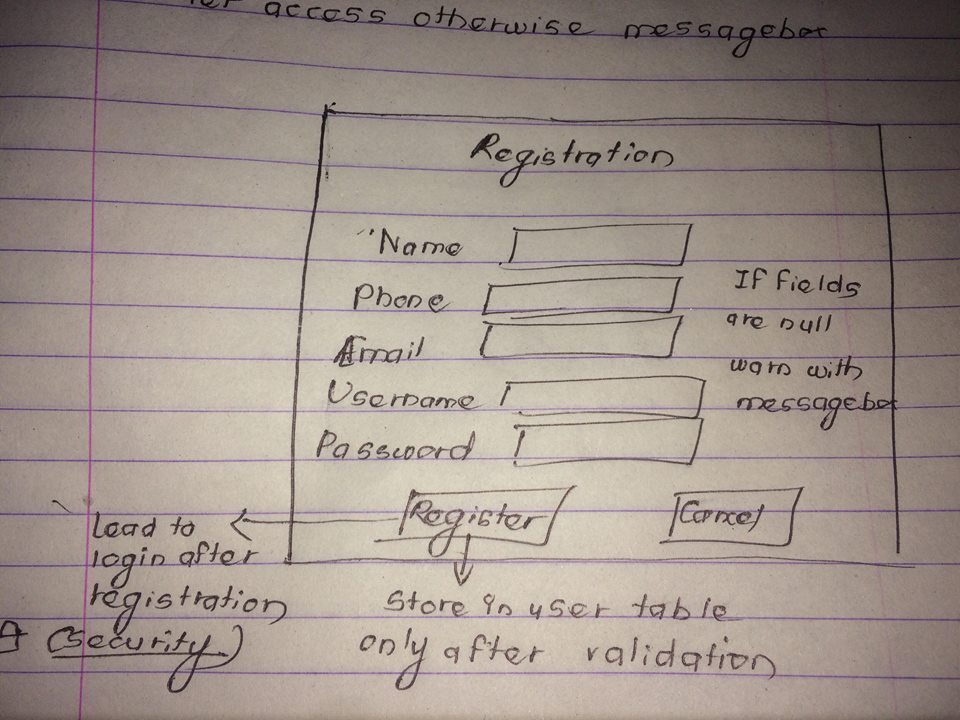 access otherwise messagebox
Registration
Name
Phone
Email
Username
Password
If fields
are null
warn with
messagebox
Register
Cancel
Lead to
login after
registration
(security)
Store in user table
only after validation